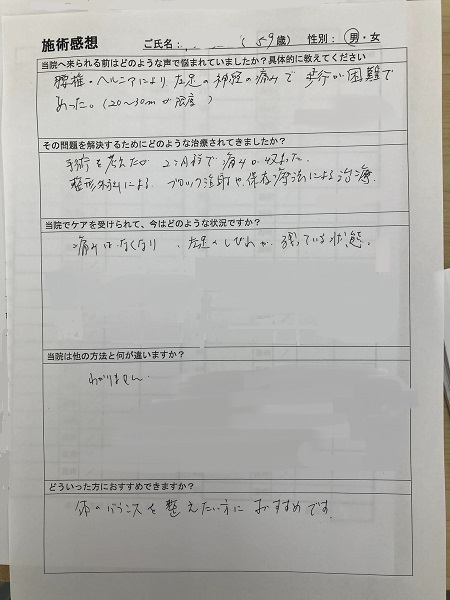 施術感想 ご氏名： （59歳） 性別： 男・女
当院へ来られる前はどのような声で悩まれていましたか？具体的に教えてください
腰椎・ヘルニアにより、左足の神経の痛みで 歩行が困難で
あった。（20～30mが限度）
その問題を解決するためにどのような治療されてきましたか？
手術を考えたが 2ヶ月程で痛みが収まった。
整形外科による、ブロック注射や、保存療法による治療。
当院でケアを受けられて、今はどのような状況ですか？
痛みはなくなり、左足のしびれが、残っている状態。
当院は他の方法と何が違いますか？
わかりません。
どういった方におすすめできますか？
体のバランスを整えたい方に おすすめです。